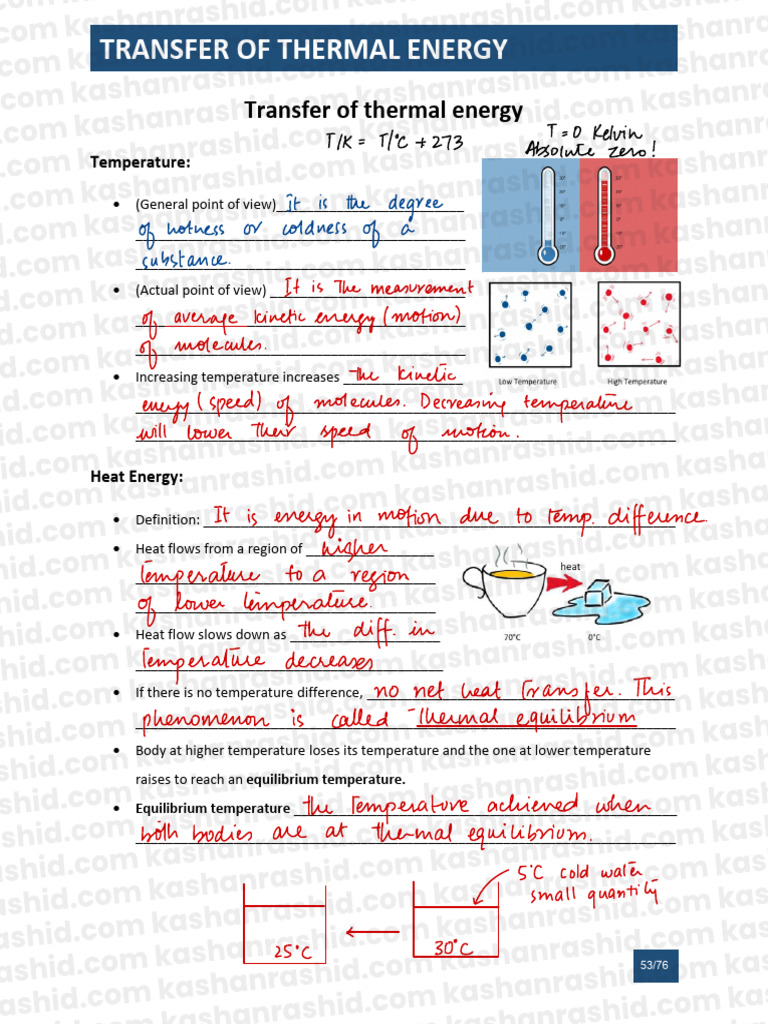 TRANSFER OF THERMAL ENERGY
Transfer of thermal energy
T/K = T/°C + 273
T = 0 Kelvin
Absolute zero!
Temperature:
• (General point of view) it is the degree
of hotness or coldness of a
substance.
• (Actual point of view) It is the measurement
of average kinetic energy (motion)
of molecules.
Low Temperature
High Temperature
• Increasing temperature increases the kinetic
energy (speed) of molecules. Decreasing temperature
will lower their speed of motion.
Heat Energy:
• Definition: It is energy in motion due to temp. difference.
• Heat flows from a region of higher
temperature to a region
of lower temperature.
heat
70°C
0°C
• Heat flow slows down as the diff. in
temperature decreases
• If there is no temperature difference, no net heat transfer. This
phenomenon is called thermal equilibrium
• Body at higher temperature loses its temperature and the one at lower temperature
raises to reach an equilibrium temperature.
• Equilibrium temperature the temperature achieved when
both bodies are at thermal equilibrium.
5°C cold water
small quantity
25°C
30°C
53/76
kashanrashid.com